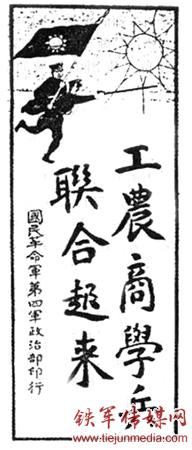 工農商學兵
聯合起來
國民革命軍第四軍政治部印行
铁军传媒网
www.tiejunmedia.com